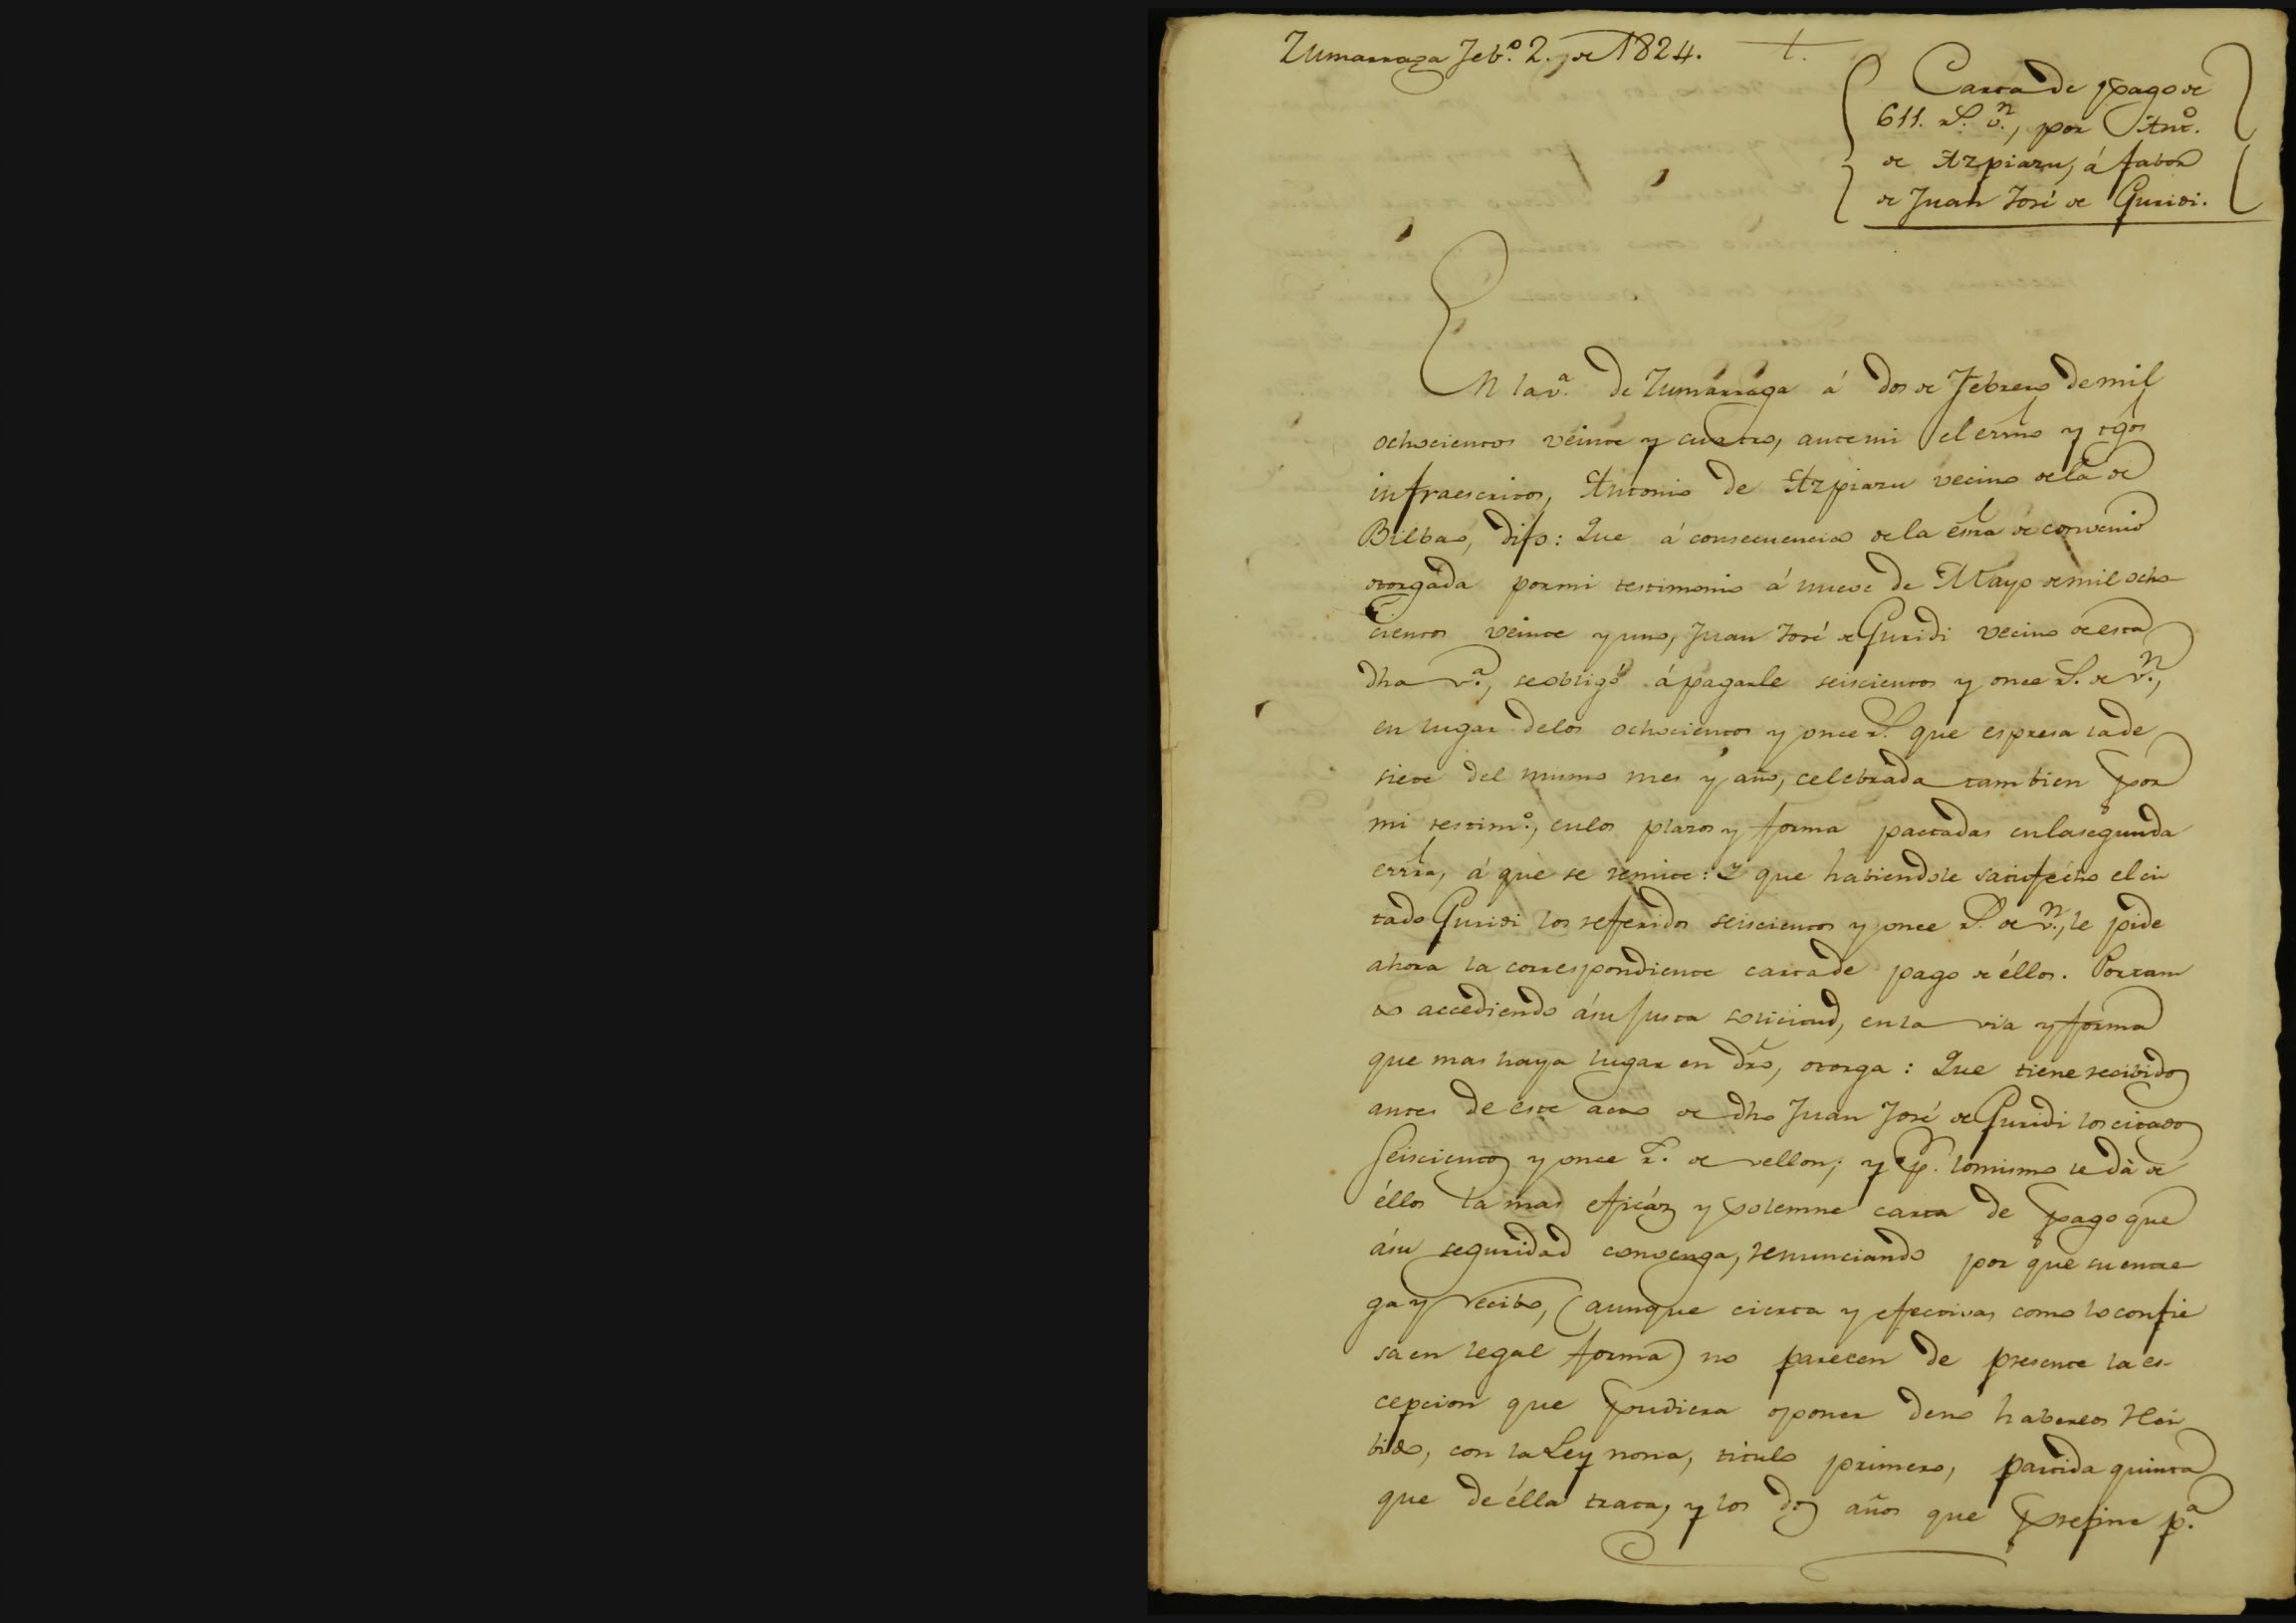 Zumarraga Feb.º 2. de 1824. t.
Carta de pago de
611. r.s v.n, por Ant.º
de Azpiazu, á fabor
de Juan José de Guridi.
En la v.a de Zumarraga á dos de Febrero de mil
ochocientos veinte y cuatro, ante mi el esnno y tgos
infraescritos, Antonio de Azpiazu vecino de la de
Bilbao, dijo: Que á consecuencia de la esra de convenio
otorgada por mi testimonio á nueve de Mayo de mil ocho-
cientos veinte y uno, Juan José de Guridi vecino de esta
dha v.a, se obligó á pagarle seiscientos y once r.s de v.n,
en lugar de los ochocientos y once r.s que espresa la de
siete del mismo mes y año, celebrada tambien por
mi testim.º, en los plazos y forma pactadas en la segunda
esrra, á que se remite: Y que habiendole satisfecho el ci
tado Guridi los referidos seiscientos y once r.s de v.n, le pide
ahora la correspondiente carta de pago de éllos. Por tan
to accediendo á su justa solicitud, en la via y forma
que mas haya lugar en dro, otorga: Que tiene recibido
antes de este acto de dho Juan José de Guridi los citados
seiscientos y once r.s de vellon; y p.r lo mismo le dà de
éllos la mas eficáz y solemne carta de pago que
á su seguridad convenga, renunciando por que su entre
ga y recibo, (aunque cierta y efectivas como lo confie
sa en legal forma) no parecen de presente la es-
cepcion que pudiera oponer de no haberlos reci
bido, con la Ley nona, titulo primero, partida quinta
que de élla trata, y los dos años que prefine p.a